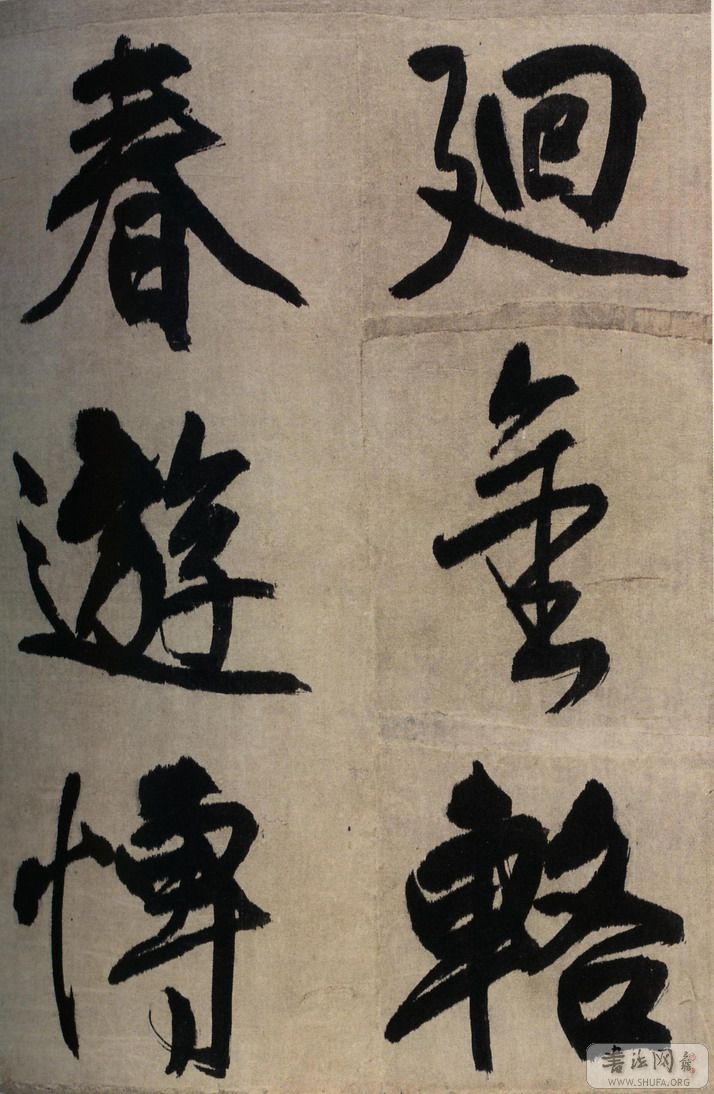 迴金輅
春遊愽
書法网
WWW.SHUFA.ORG